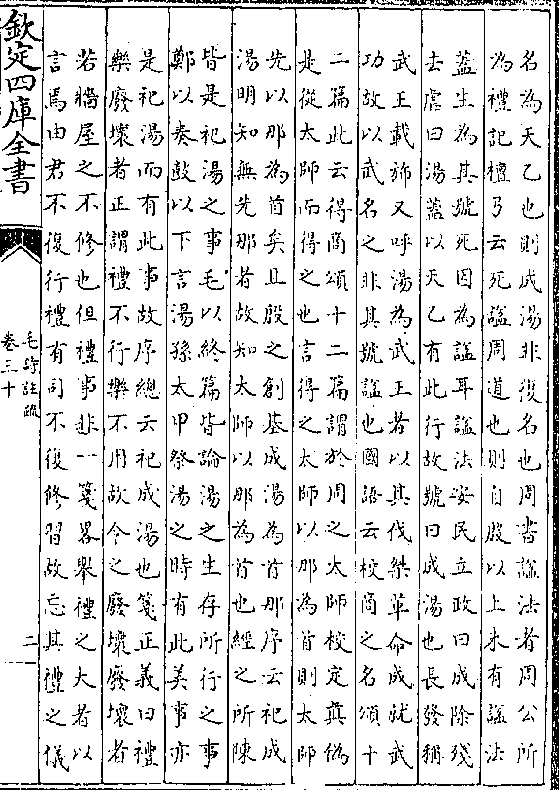 名為天乙也則成湯非復名也周書諡法者周公所
為禮記檀弓云死諡周道也則自殷以上未有諡法
蓋生為其號死因為諡耳諡法安民立政曰成除殘
去虐曰湯蓋以天乙有此行故號曰成湯也長發稱
武王載斾又呼湯為武王者以其伐桀革命成就武
功故以武名之非其號諡也國語云校商之名頌十
二篇此云得商頌十二篇謂於周之太師校定真偽
是從太師而得之也言得之太師以那為首則太師
先以那為首矣且殷之創基成湯為首那序云祀成
湯明知無先那者故知太師以那為首也經之所陳
皆是祀湯之事毛以終篇皆論湯之生存所行之事
鄭以奏鼓以下言湯孫太甲祭湯之時有此美事亦
是祀湯而有此事故序總云祀成湯也箋正義曰禮
樂廢壞者正謂禮不行樂不用故令之廢壞廢壞者
若牆屋之不修也但禮事非一箋畧舉禮之大者以
言焉由君不復行禮有司不復修習故忘其禮之儀
欽定四庫全書
毛詩註疏
卷三十
二